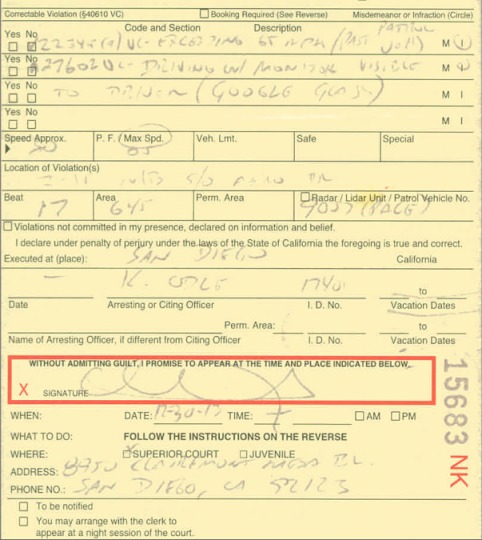 Correctable Violation (§40610 VC) Booking Required (See Reverse) Misdemeanor or Infraction (Circle)
Yes No Code and Section Description
22349(a) VC- EXCEEDING 65 MPH ( PATROL M I
Yes No
27602 VC- DRIVING W/ MONITOR VISIBLE M I
Yes No
TO DRIVER (GOOGLE GLASS) M I
Yes No
M I
Speed Approx. P. F. / Max Spd. Veh. Lmt. Safe Special
65
Location of Violation(s)
I-15 S/O AERO DR
Beat Area Perm. Area Radar / Lidar Unit / Patrol Vehicle No.
17 645 (PACE)
Violations not committed in my presence, declared on information and belief.
I declare under penalty of perjury under the laws of the State of California the foregoing is true and correct.
Executed at (place): SAN DIEGO California
K. to
Date Arresting or Citing Officer I. D. No. Vacation Dates
Perm. Area: to
Name of Arresting Officer, if different from Citing Officer I. D. No. Vacation Dates
WITHOUT ADMITTING GUILT, I PROMISE TO APPEAR AT THE TIME AND PLACE INDICATED BELOW.
X SIGNATURE
WHEN: DATE: TIME: AM PM
WHAT TO DO: FOLLOW THE INSTRUCTIONS ON THE REVERSE
WHERE: SUPERIOR COURT JUVENILE
ADDRESS: 8950 CLAIREMONT MESA BL.
PHONE NO.: SAN DIEGO, CA 92123
To be notified
You may arrange with the clerk to
appear at a night session of the court.
15683 NK